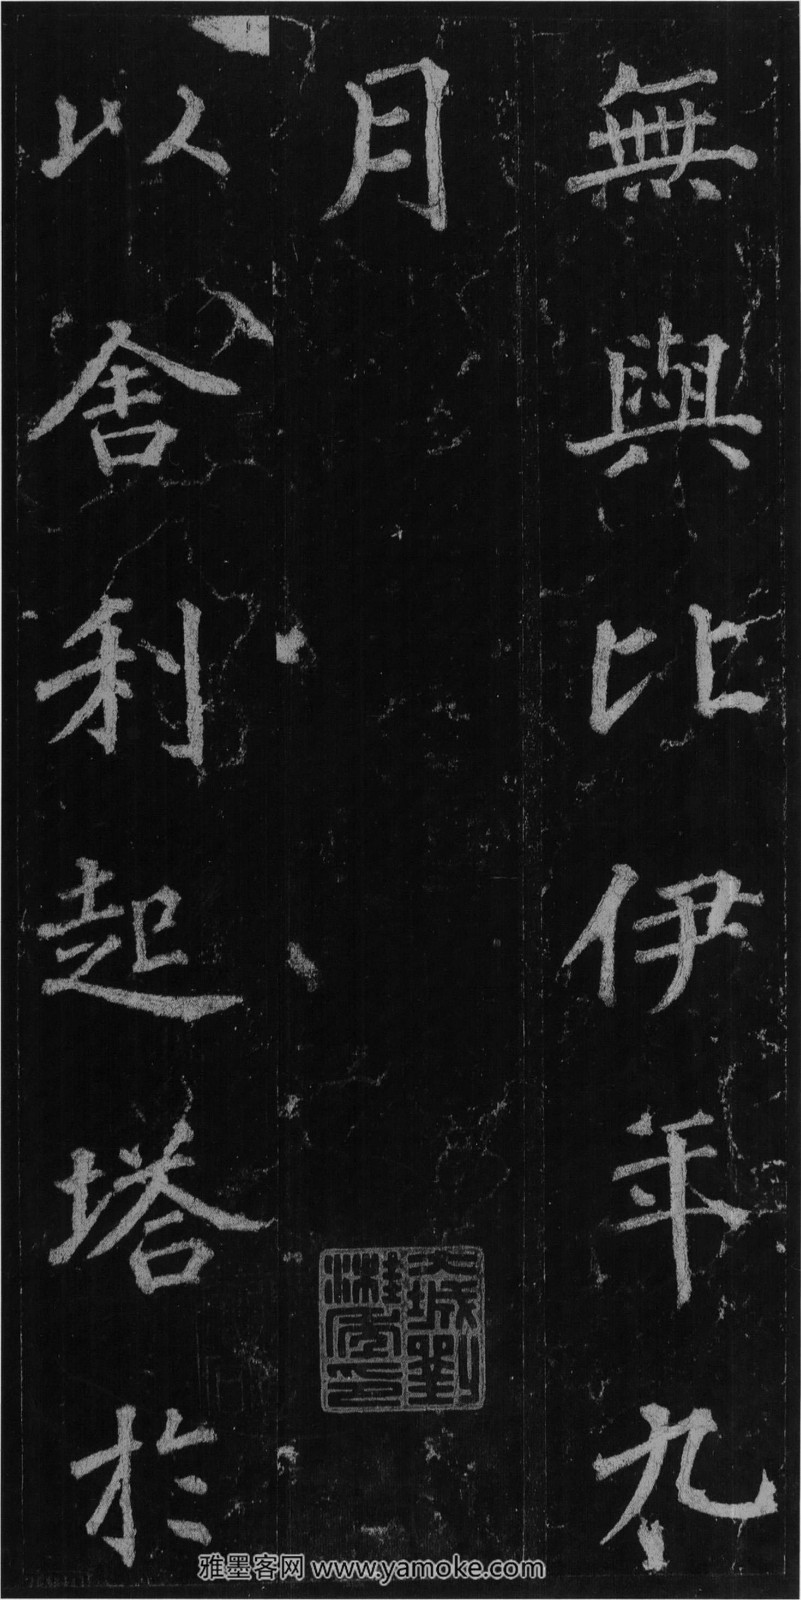 無與比伊年九
月
以舍利起塔於
雅墨客网 www.yamoke.com